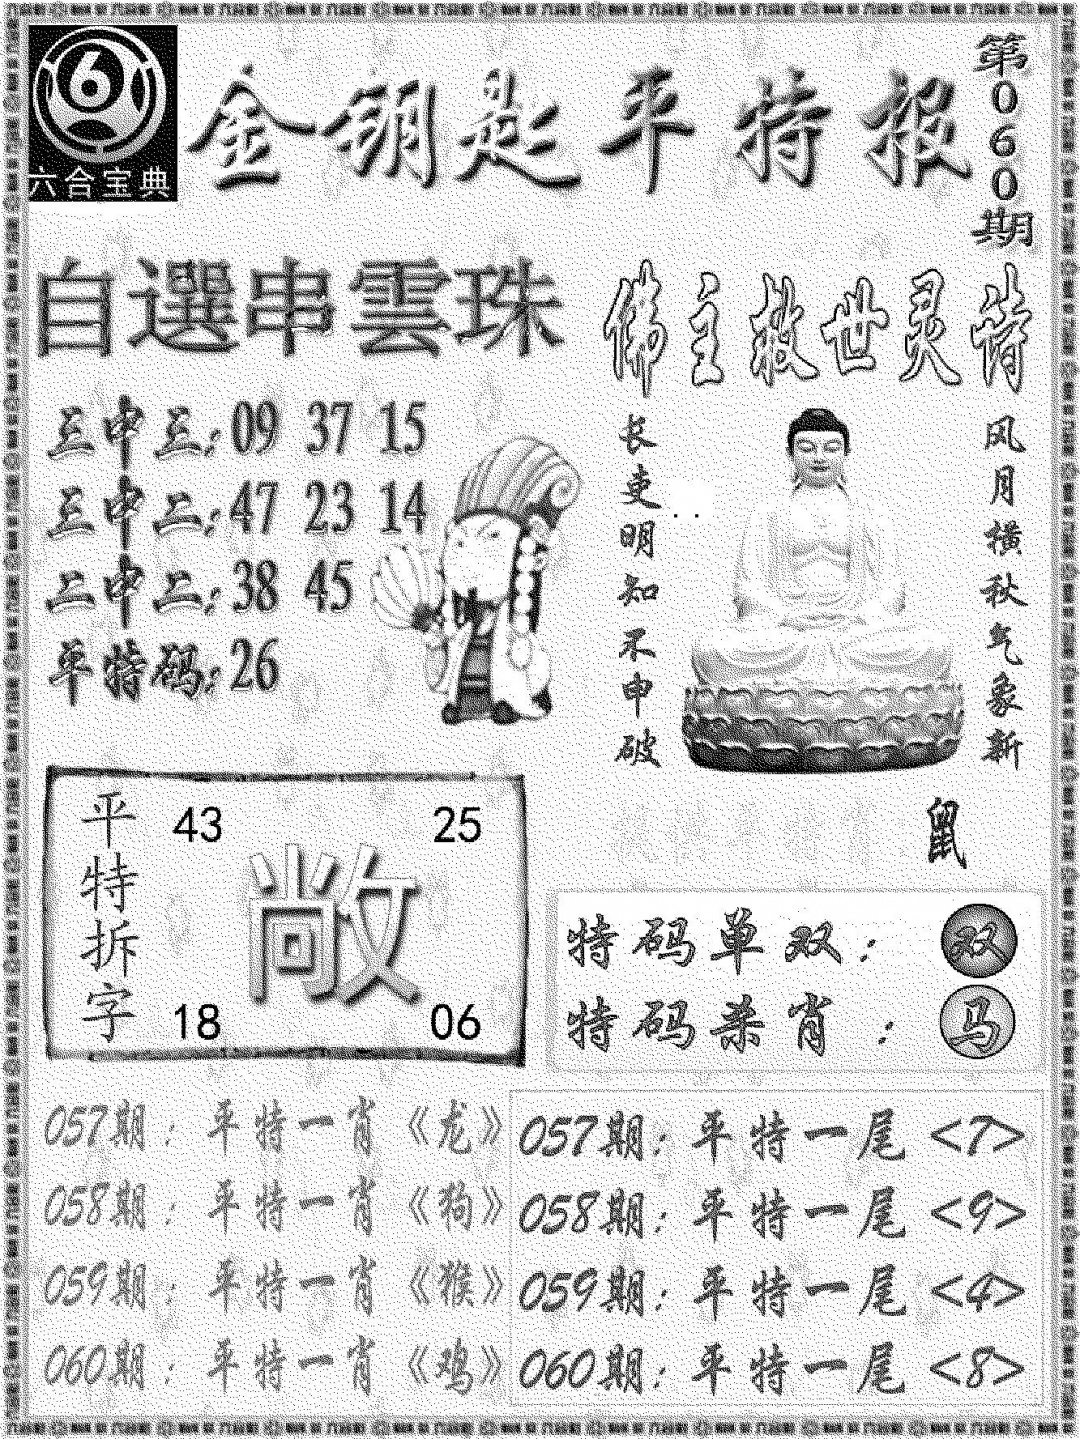 6
六合宝典
金钥匙平特报
第060期
自選串雲珠
三中三:09 37 15
三中二:47 23 14
二中二:38 45
平特码:26
佛主救世灵诗
风月横秋气象新
长吏明知不申破
鼠
平特拆字
43 25
敞
18 06
特码单双：双
特码杀肖：马
057期：平特一肖《龙》
058期：平特一肖《狗》
059期：平特一肖《猴》
060期：平特一肖《鸡》
057期：平特一尾<7>
058期：平特一尾<9>
059期：平特一尾<4>
060期：平特一尾<8>